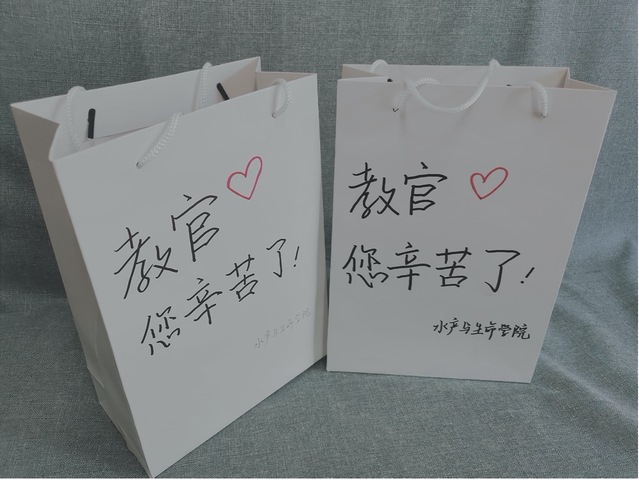 教官
您辛苦了!
水产与生命学院
教官
您辛苦了!
水产与生命学院